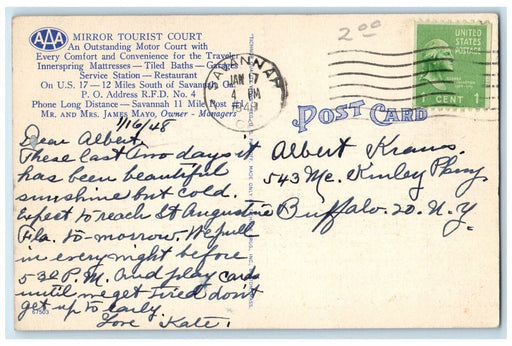 AAA MIRROR TOURIST COURT
An Outstanding Motor Court with
Every Comfort and Convenience for the Traveler
Innerspring Mattresses — Tiled Baths — Garages
Service Station — Restaurant
On U.S. 17 — 12 Miles South of Savannah, Ga.
P. O. Address R.F.D. No. 4
Phone Long Distance — Savannah 11 Mile Post
MR. AND MRS. JAMES MAYO, Owner - Managers
1/16/48
Dear Albert,
These last two days it
has been beautiful
sunshine but cold.
Expect to reach St Augustine
Fla. to-morrow. We pull
in every night before
5 30 P.M. And play cards
until we get tired don't
get up to early.
Love Kate.
67503
SAVANNAH
JAN 17
4 PM
1948
2 00
UNITED
STATES
POSTAGE
1 CENT 1
POST CARD
Albert Kraus.
543 Mc. Kinley Pkwy.
Buffalo. 20. N.Y.